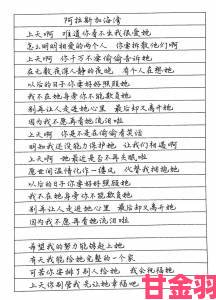 阿拉斯加海湾
上天啊 难道你看不出我很爱她
怎么明明相爱的两个人 你要拆散他们啊
上天啊 你千万不要偷偷告诉她
在无数夜深人静的夜晚 有个人在想她
以后的日子你要好好照顾她
我不在她身旁你不能欺负她
别再让人走进她心里 最后却又离开她
因为我不愿再看她流泪啦
上天啊 你是不是在偷偷看笑话
明知我还没能力保护她 让我们相遇啊
上天啊 她最近是否不再失眠啦
愿世间温情化作一缕风 代替我拥抱她
以后的日子你要好好照顾她
我不在她身旁你不能欺负她
别再让人走进她心里 最后却又离开她
因为我不愿再看她流泪啦
希望我的努力能够赶上她
有天我能给她完整的一个家
可若你安排了别人给她 我会祝福她
上天你别管我先让她幸福吧
甘金羽